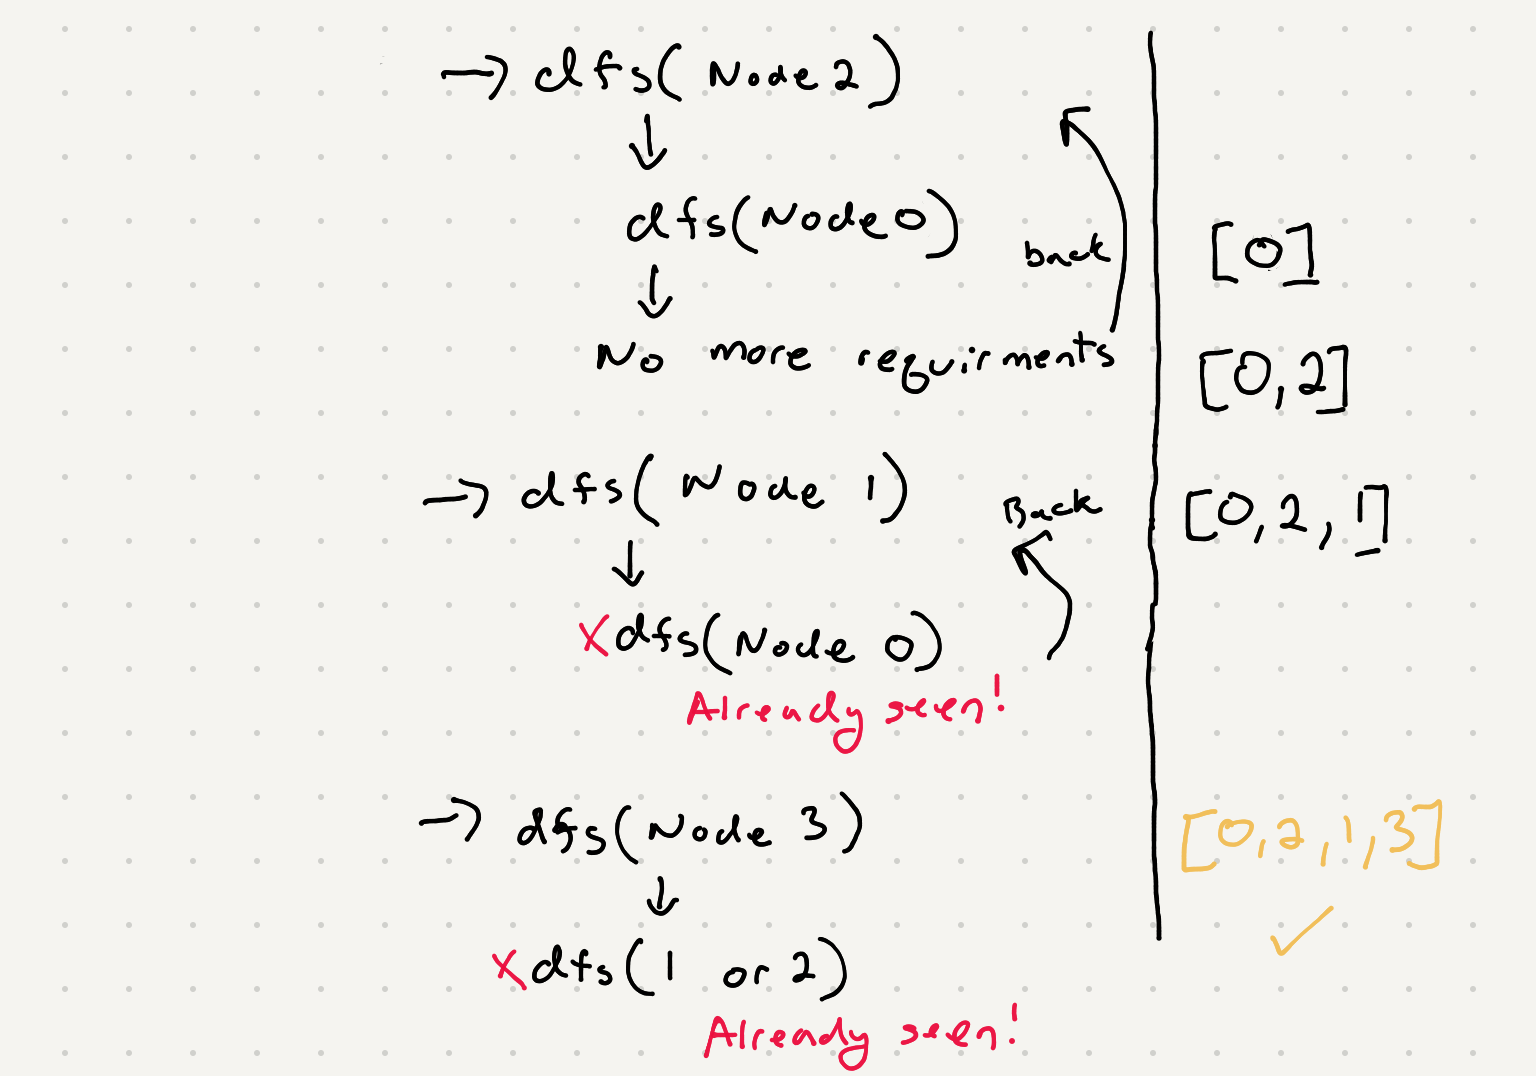 → dfs(Node 2)
↓
dfs(Node 0)
back
[0]
↓
No more requirments
[0,2]
→ dfs(Node 1)
Back
[0,2,1]
↓
X dfs(Node 0)
Already seen!
→ dfs(Node 3)
[0,2,1,3]
↓
✓
X dfs(1 or 2)
Already seen!